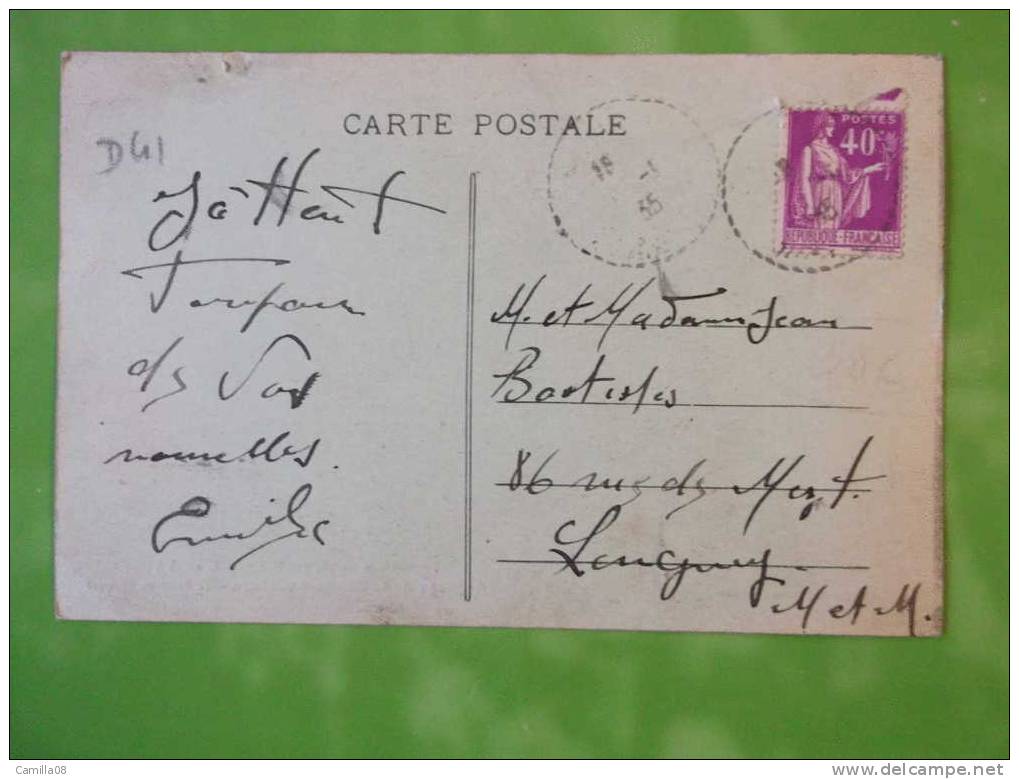 CARTE POSTALE
D41
J'attent
Toujours
de Vos
nouvelles.
Emile
18 -1
35
POSTES
40c
REPUBLIQUE-FRANCAISE
M. et Madame Jean
86 rue de Metz.
Longwy
M et M.
Camilla08
www.delcampe.net